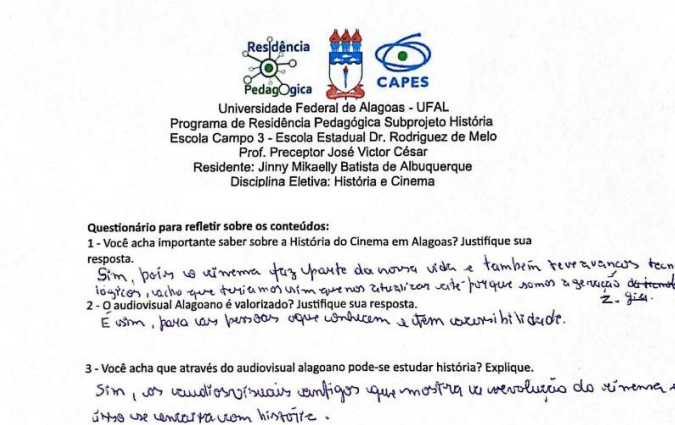 Residência
PedagOgica
CAPES
Universidade Federal de Alagoas - UFAL
Programa de Residência Pedagógica Subprojeto História
Escola Campo 3 - Escola Estadual Dr. Rodriguez de Melo
Prof. Preceptor José Victor César
Residente: Jinny Mikaelly Batista de Albuquerque
Disciplina Eletiva: História e Cinema
Questionário para refletir sobre os conteúdos:
1 - Você acha importante saber sobre a História do Cinema em Alagoas? Justifique sua
resposta.
Sim, pois o cinema faz parte da nossa vida e também teve avanços tecno
lógicos, acho que teriamos sim que nos atualizar até porque somos a geração
Z.
2 - O audiovisual Alagoano é valorizado? Justifique sua resposta.
É sim, para as pessoas que conhecem e tem acessibilidade.
3 - Você acha que através do audiovisual alagoano pode-se estudar história? Explique.
Sim, os audiosvisuais antigos que mostra a evolução do cinema e
isso se encaixa com história.